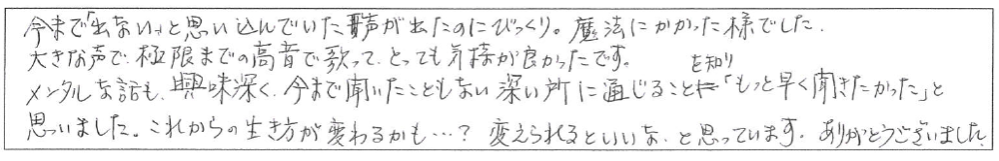 今まで「出ない」と思い込んでいた声が出たのにびっくり。魔法にかかった様でした.
大きな声で、極限までの高音で歌って、とっても気持が良かったです。
メンタルな話も、興味深く、今まで聞いたこともない深い所に通じることを知り「もっと早く聞きたかった」と
思いました。これからの生き方が変わるかも…？変えられるといいな、と思っています。ありがとうございました